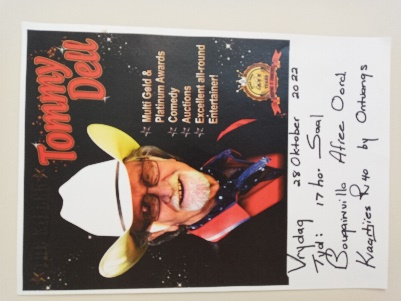 Tommy
Dell
Multi Gold &
Platinum Awards
Comedy
Auctions
Excellent all-round
Entertainer!
Vrydag 28 Oktober 2022
Tyd: 17 ho. Saal
Bougainvilla Aftree Oord
Kaartjies R40 by Ontvangs